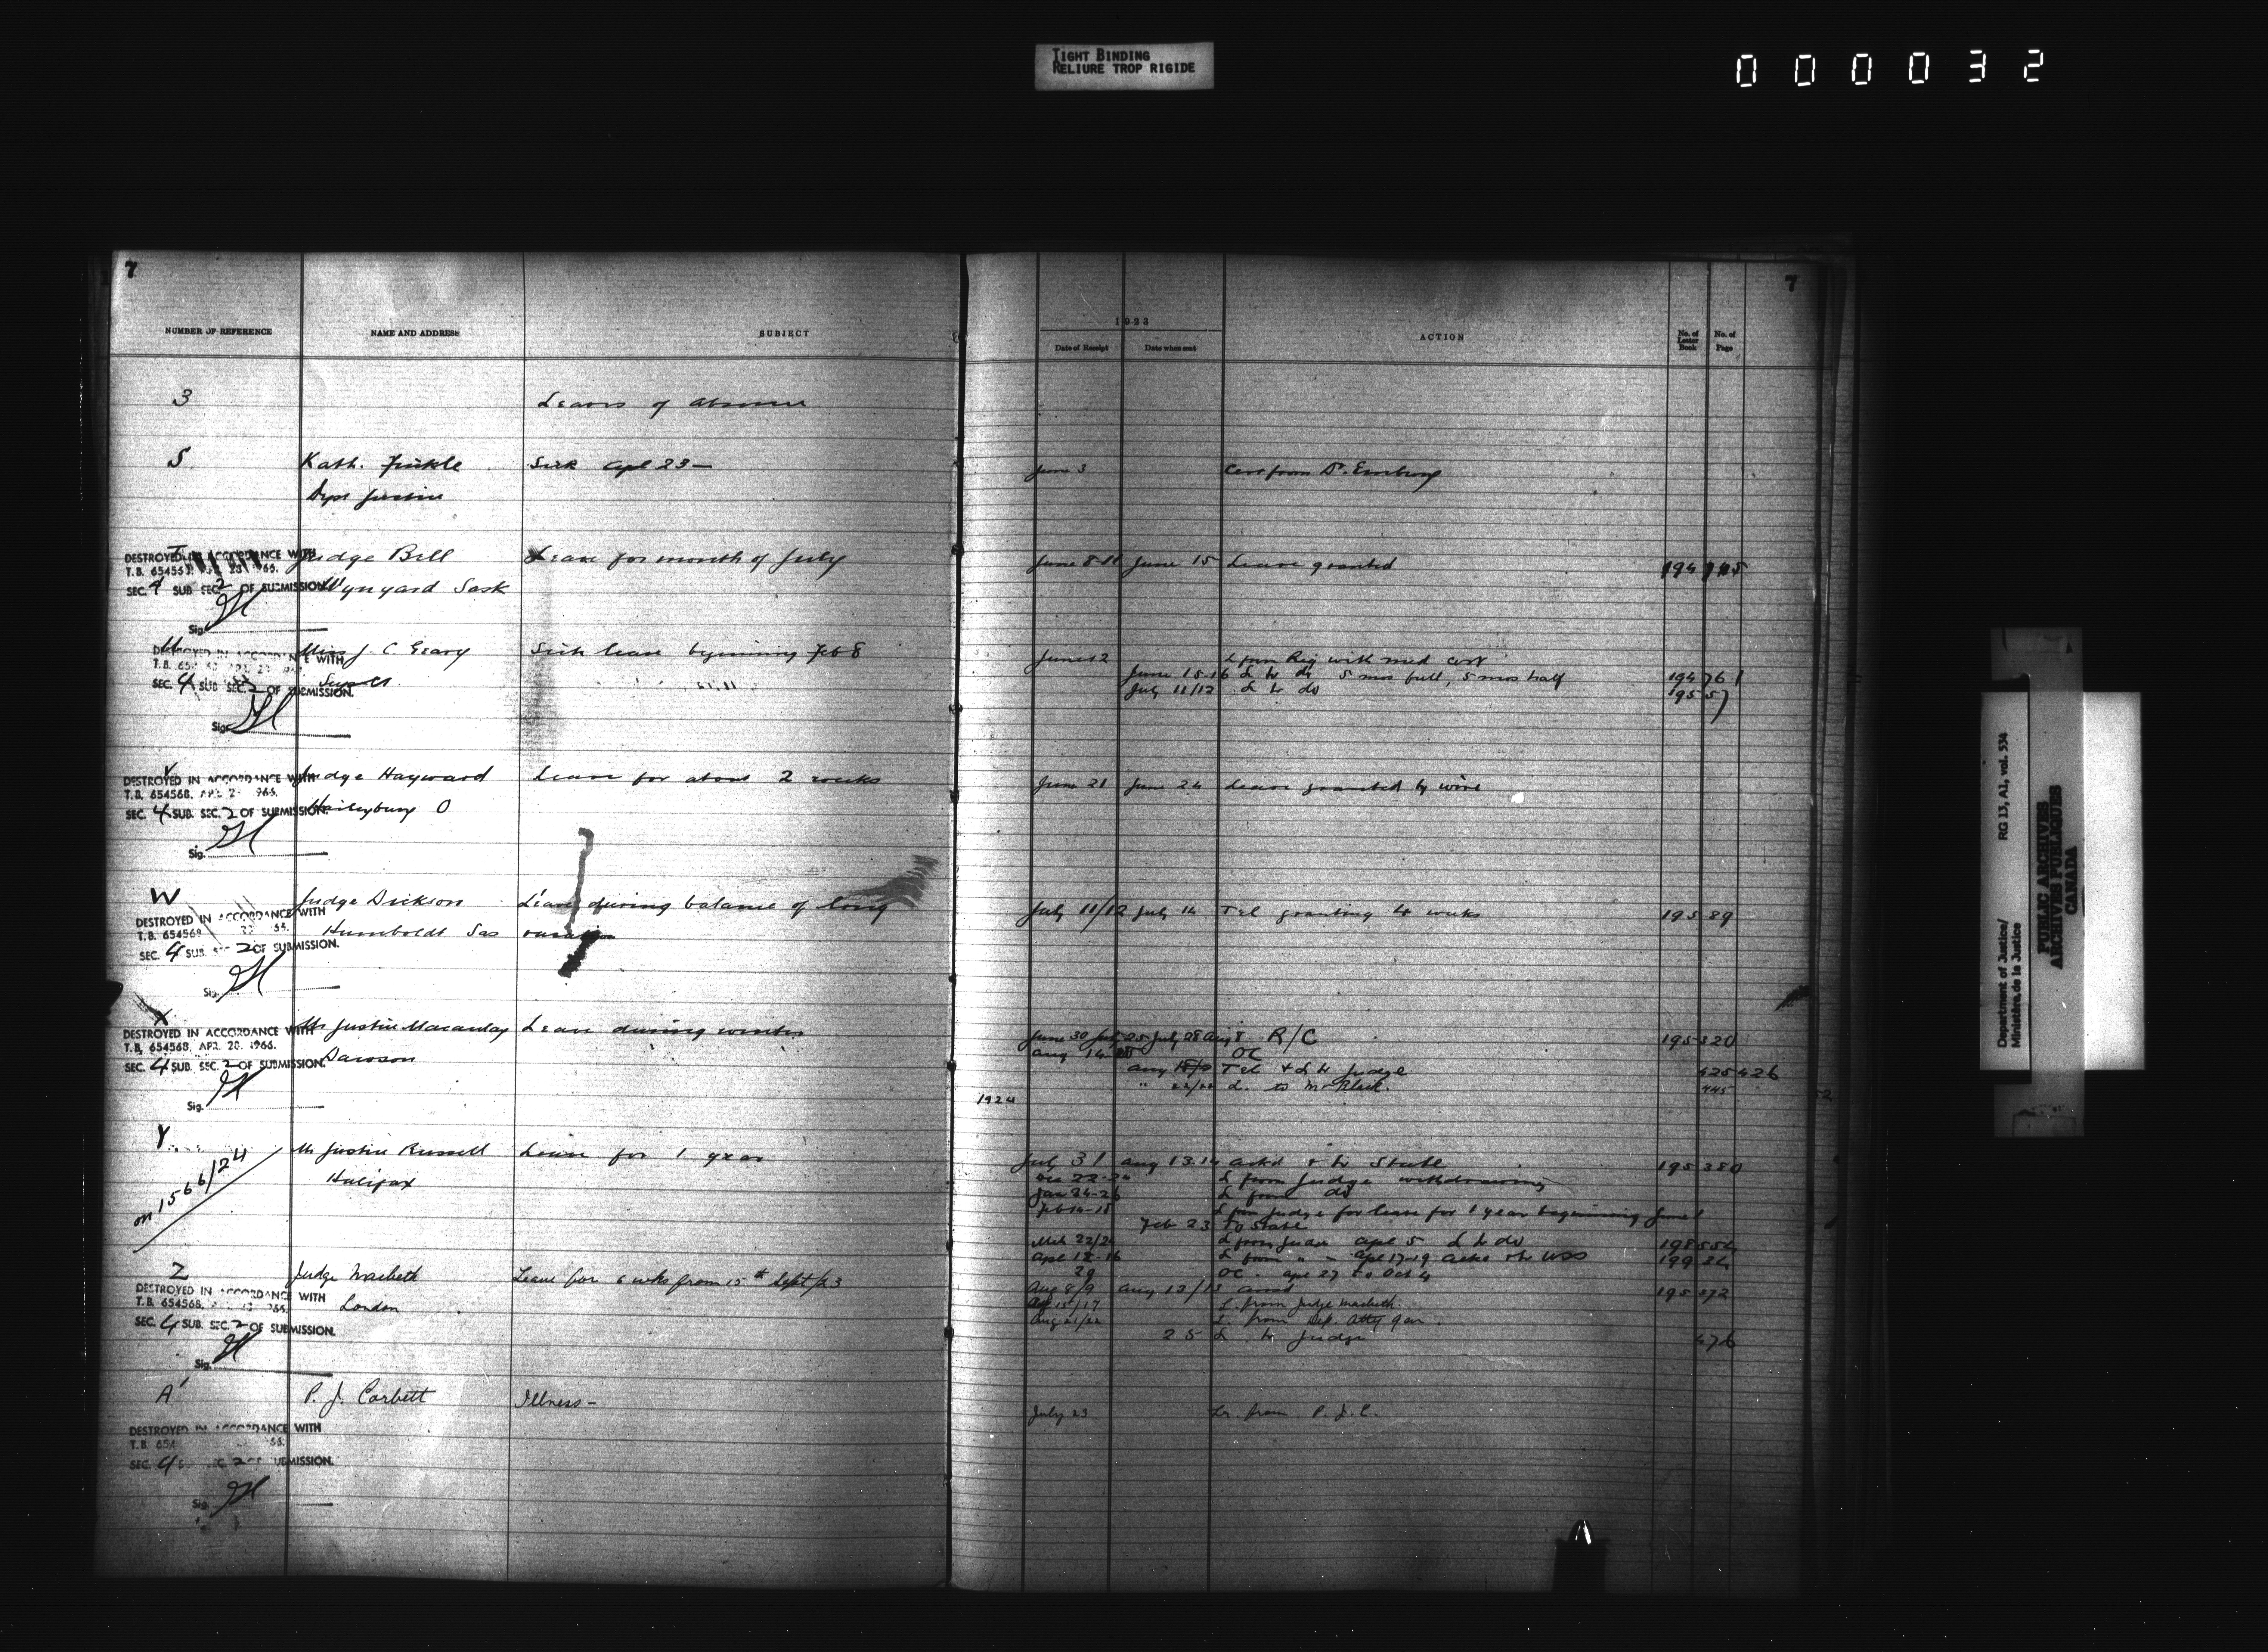 TIGHT BINDING
RELIURE TROP RIGIDE
000032
7
NUMBER OF REFERENCE NAME AND ADDRESS SUBJECT
3 Leaves of absence
S. Kath. Sick Apl 23 —
Dept Justice
T Judge Bell Leave for month of July
DESTROYED IN ACCORDANCE WITH
T.B. 654568
Wynyard Sask
SEC. 4 SUB SEC. 2 OF SUBMISSION
Sig.
U Miss J. C. Geary Sick leave beginning Feb 8
DESTROYED IN ACCORDANCE WITH
SEC. 4 SUB SEC. 2 OF SUBMISSION.
Sig.
V Judge Hayward Leave for about 2 weeks
DESTROYED IN ACCORDANCE WITH
T.B. 654568, APR. 966.
Haileybury O
SEC. 4 SUB. SEC. 2 OF SUBMISSION.
Sig.
W Judge Dickson Leave during balance of long
DESTROYED IN ACCORDANCE WITH
T.B. 654568
Humboldt Sas vacation
SEC. 4 SUB. SEC. 2 OF SUBMISSION.
Sig.
X Mr Justice Macaulay Leave during winter
DESTROYED IN ACCORDANCE WITH
T.B. 654568, APR. 28. 1966.
Dawson
SEC. 4 SUB. SEC. 2 OF SUBMISSION.
Sig.
Y Mr Justice Russell Leave for 1 year
Halifax
on 1566/24
Z Judge Macbeth Leave for 6 wks from 15th Sept/23
DESTROYED IN ACCORDANCE WITH
T.B. 654568,
London
SEC. 4 SUB. SEC. 2 OF SUBMISSION.
Sig.
A' P. J. Corbett Illness -
DESTROYED IN ACCORDANCE WITH
T.B. 654
SEC. 4 SEC. 2 OF SUBMISSION.
Sig.
7
1923
Date of Receipt Date when sent ACTION No. of Letter Book No. of Page
June 3 Cert from Dr.
June 8-11 June 15 Leave granted 194
June 12 L from Reg with med cert
June 15-16 L to do 5 mos full, 5 mos half 194 761
July 11/12 L to do 195 57
June 21 June 24 Leave granted by wire
July 11/12 July 14 Tel granting 4 weeks 195 89
June 30 July 25 July 28 Aug 8 R/C 195 320
Aug 14 OC
Aug Tel & L to Judge 425 426
" 22/22 L. to Mr Black. 445
1924
July 31 Aug 13.14 Ackd & to State 195 380
Dec 22-24 L from Judge withdrawing
Jan 24-26 L from do
Feb 14-15 L from Judge for leave for 1 year beginning June 1
Feb 23 To State
Mch 22/24 L from Judge Apl 5 L to do 198 554
Apl 12-16 L from " - Apl 17-19 Ackd & to USS 199 34
29 OC. Apl 27 to Oct 4
Aug 8/9 Aug 13/13 195 372
15/17 L. from Judge Macbeth.
Aug 21/22 L. from Dep. Atty Gen.
25 L to Judge 476
July 23 Lr. from P. J. C.
Department of Justice/
Ministère de la Justice
RG 13, A1, vol. 534
PUBLIC ARCHIVES
ARCHIVES PUBLIQUES
CANADA